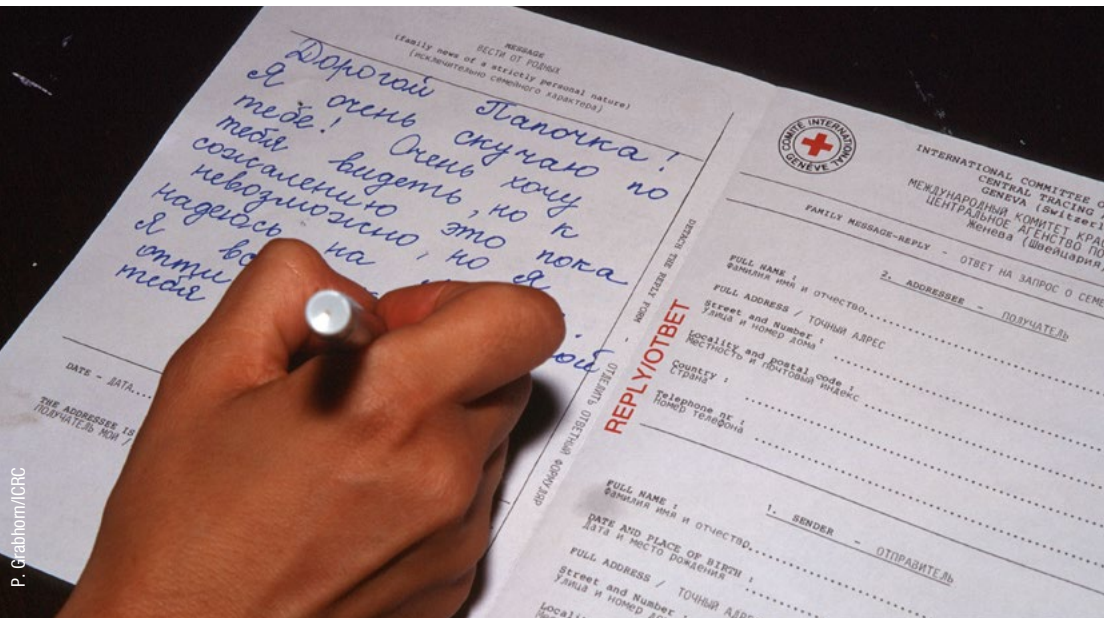 MESSAGE
ВЕСТИ ОТ РОДНЫХ
(family news of a strictly personal nature)
(исключительно семейного характера)
Дорогой Папочка!
Я очень скучаю по
тебе! Очень хочу
тебя видеть, но к
сожалению это пока
невозможно, но я
надеюсь на
Я
тебя
DATE - ДАТА
THE ADDRESSEE IS
ПОЛУЧАТЕЛЬ МОЙ /
DETACH THE REPLY FORM - ОТДЕЛИТЬ ОТВЕТНЫЙ ФОРМУЛЯР
REPLY/ОТВЕТ
COMITÉ INTERNATIONAL
GENÈVE
INTERNATIONAL COMMITTEE
CENTRAL TRACING
GENEVA (Switzerl
МЕЖДУНАРОДНЫЙ КОМИТЕТ КРАС
ЦЕНТРАЛЬНОЕ АГЕНСТВО ПО
Женева (Швейцария)
FAMILY MESSAGE-REPLY - ОТВЕТ НА ЗАПРОС О СЕМЕ
2. ADDRESSEE - ПОЛУЧАТЕЛЬ
FULL NAME :
Фамилия имя и отчество
FULL ADDRESS / ТОЧНЫЙ АДРЕС
Street and Number :
Улица и номер дома
Locality and postal code :
Местность и почтовый индекс
Country :
Страна
Telephone nr :
Номер телефона
1. SENDER - ОТПРАВИТЕЛЬ
FULL NAME :
Фамилия имя и отчество
DATE AND PLACE OF BIRTH :
Дата и место рождения
FULL ADDRESS / ТОЧНЫЙ АДРЕ
Street and Number
Улица и номер до
Locali
P. Grabhorn/ICRC